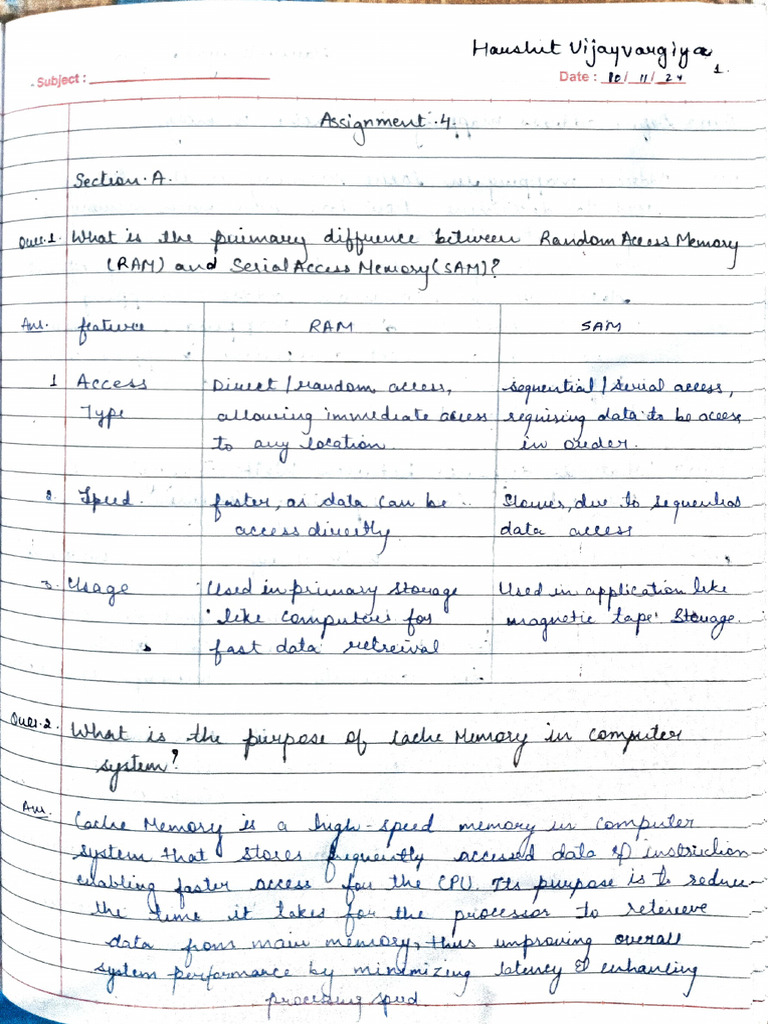 Harshit Vijayvargiya
1.
Subject :
Date : 10/ 11/ 24
Assignment.4.
Section.A.
Ques.1. What is the primary diffrence between Random Access Memory
(RAM) and Serial Access Memory (SAM)?
Ans. feature RAM SAM
1 Access Direct/random access, sequential/serial access,
Type allowing immediate access requiring data to be access
to any location. in order.
2. Speed. faster, as data can be Slower, due to sequential
access directly data access
3. Usage Used in primary storage Used in application like
like computers for magnetic tape storage.
fast data retreival
Ques.2. What is the purpose of Cache Memory in computer
system?
Ans. Cache Memory is a high-speed memory in computer
system that stores frequently accessed data & instruction
enabling faster access for the CPU. Its purpose is to reduce
the time it takes for the processor to retereve
data from main memory, thus improving overall
system performance by minimizing latency & enhancing
processing speed.